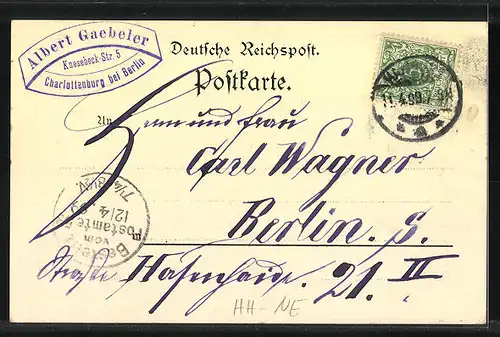 Albert Gaebeler
Knesebeck-Str. 5
Charlottenburg bei Berlin
Deutsche Reichspost.
Postkarte.
An
Herrn und Frau
Carl Wagner
Berlin. S.
Straße Hasenhaide. 21. II
Bestellt
vom
Postamte
12/4
HH-NE